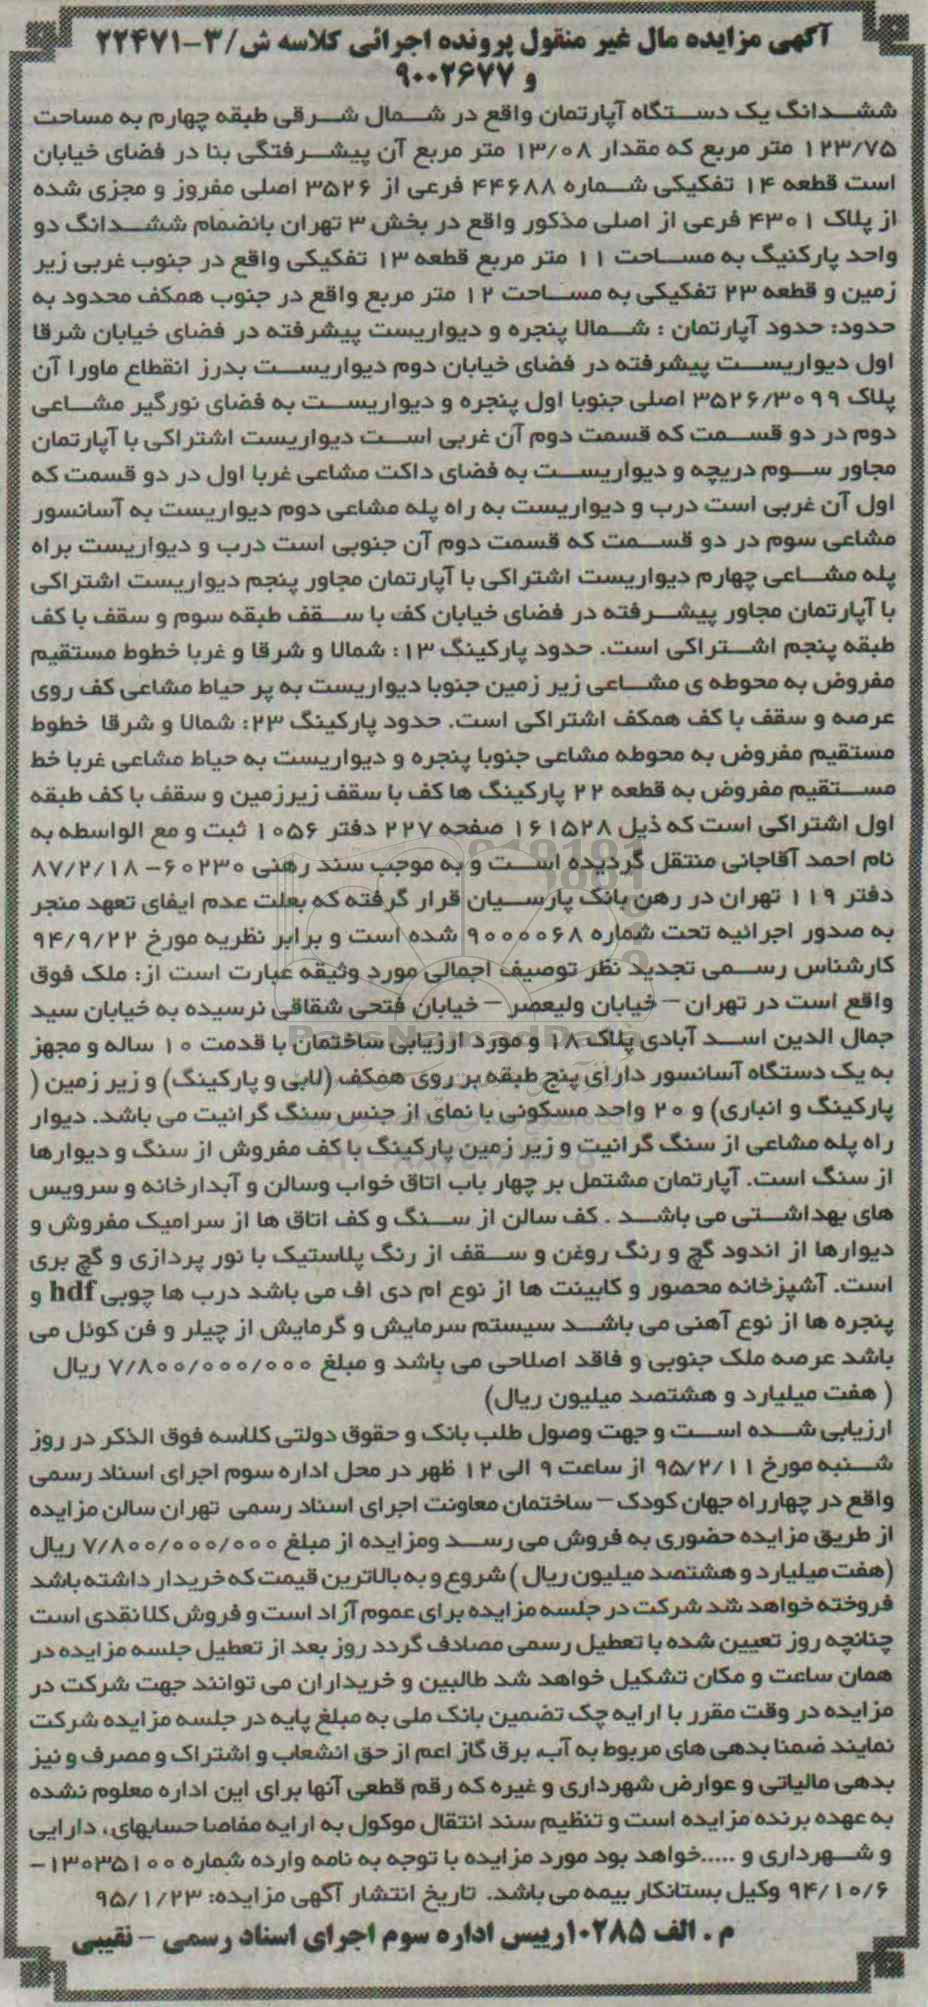 آگهی مزایده مال غیر منقول پرونده اجرائی کلاسه ش/۳-۲۲۴۷۱
و ۹۰۰۲۶۷۷
ششدانگ یک دستگاه آپارتمان واقع در شمال شرقی طبقه چهارم به مساحت
۱۲۳/۷۵ متر مربع که مقدار ۱۳/۰۸ متر مربع آن پیشرفتگی بنا در فضای خیابان
است قطعه ۱۴ تفکیکی شماره ۴۴۶۸۸ فرعی از ۳۵۲۶ اصلی مفروز و مجزی شده
از پلاک ۴۳۰۱ فرعی از اصلی مذکور واقع در بخش ۳ تهران بانضمام ششدانگ دو
واحد پارکنیگ به مساحت ۱۱ متر مربع قطعه ۱۳ تفکیکی واقع در جنوب غربی زیر
زمین و قطعه ۲۳ تفکیکی به مساحت ۱۲ متر مربع واقع در جنوب همکف محدود به
حدود: حدود آپارتمان : شمالا پنجره و دیواریست پیشرفته در فضای خیابان شرقا
اول دیواریست پیشرفته در فضای خیابان دوم دیواریست بدرز انقطاع ماورا آن
پلاک ۳۵۲۶/۳۰۹۹ اصلی جنوبا اول پنجره و دیواریست به فضای نورگیر مشاعی
دوم در دو قسمت که قسمت دوم آن غربی است دیواریست اشتراکی با آپارتمان
مجاور سوم دریچه و دیواریست به فضای داکت مشاعی غربا اول در دو قسمت که
اول آن غربی است درب و دیواریست به راه پله مشاعی دوم دیواریست به آسانسور
مشاعی سوم در دو قسمت که قسمت دوم آن جنوبی است درب و دیواریست براه
پله مشاعی چهارم دیواریست اشتراکی با آپارتمان مجاور پنجم دیواریست اشتراکی
با آپارتمان مجاور پیشرفته در فضای خیابان کف با سقف طبقه سوم و سقف با کف
طبقه پنجم اشتراکی است. حدود پارکینگ ۱۳: شمالا و شرقا و غربا خطوط مستقیم
مفروض به محوطه ی مشاعی زیر زمین جنوبا دیواریست به پر حیاط مشاعی کف روی
عرصه و سقف با کف همکف اشتراکی است. حدود پارکینگ ۲۳: شمالا و شرقا خطوط
مستقیم مفروض به محوطه مشاعی جنوبا پنجره و دیواریست به حیاط مشاعی غربا خط
مستقیم مفروض به قطعه ۲۲ پارکینگ ها کف با سقف زیرزمین و سقف با کف طبقه
اول اشتراکی است که ذیل ۱۶۱۵۲۸ صفحه ۲۲۷ دفتر ۱۰۵۶ ثبت و مع الواسطه به
نام احمد آقاجانی منتقل گردیده است و به موجب سند رهنی ۶۰۲۳۰- ۸۷/۲/۱۸
دفتر ۱۱۹ تهران در رهن بانک پارسیان قرار گرفته که بعلت عدم ایفای تعهد منجر
به صدور اجرائیه تحت شماره ۹۰۰۰۰۶۸ شده است و برابر نظریه مورخ ۹۴/۹/۲۲
کارشناس رسمی تجدید نظر توصیف اجمالی مورد وثیقه عبارت است از: ملک فوق
واقع است در تهران – خیابان ولیعصر – خیابان فتحی شقاقی نرسیده به خیابان سید
جمال الدین اسد آبادی پلاک ۱۸ و مورد ارزیابی ساختمان با قدمت ۱۰ ساله و مجهز
به یک دستگاه آسانسور دارای پنج طبقه بر روی همکف (لابی و پارکینگ) و زیر زمین (
پارکینگ و انباری) و ۲۰ واحد مسکونی با نمای از جنس سنگ گرانیت می باشد. دیوار
راه پله مشاعی از سنگ گرانیت و زیر زمین پارکینگ با کف مفروش از سنگ و دیوارها
از سنگ است. آپارتمان مشتمل بر چهار باب اتاق خواب وسالن و آبدارخانه و سرویس
های بهداشتی می باشد . کف سالن از سنگ و کف اتاق ها از سرامیک مفروش و
دیوارها از اندود گچ و رنگ روغن و سقف از رنگ پلاستیک با نور پردازی و گچ بری
است. آشپزخانه محصور و کابینت ها از نوع ام دی اف می باشد درب ها چوبی hdf و
پنجره ها از نوع آهنی می باشد سیستم سرمایش و گرمایش از چیلر و فن کوئل می
باشد عرصه ملک جنوبی و فاقد اصلاحی می باشد و مبلغ ۷/۸۰۰/۰۰۰/۰۰۰ ریال
( هفت میلیارد و هشتصد میلیون ریال)
ارزیابی شده است و جهت وصول طلب بانک و حقوق دولتی کلاسه فوق الذکر در روز
شنبه مورخ ۹۵/۲/۱۱ از ساعت ۹ الی ۱۲ ظهر در محل اداره سوم اجرای اسناد رسمی
واقع در چهارراه جهان کودک – ساختمان معاونت اجرای اسناد رسمی تهران سالن مزایده
از طریق مزایده حضوری به فروش می رسد ومزایده از مبلغ ۷/۸۰۰/۰۰۰/۰۰۰ ریال
(هفت میلیارد و هشتصد میلیون ریال ) شروع و به بالاترین قیمت که خریدار داشته باشد
فروخته خواهد شد شرکت در جلسه مزایده برای عموم آزاد است و فروش کلا نقدی است
چنانچه روز تعیین شده با تعطیل رسمی مصادف گردد روز بعد از تعطیل جلسه مزایده در
همان ساعت و مکان تشکیل خواهد شد طالبین و خریداران می توانند جهت شرکت در
مزایده در وقت مقرر با ارایه چک تضمین بانک ملی به مبلغ پایه در جلسه مزایده شرکت
نمایند ضمنا بدهی های مربوط به آب، برق گاز اعم از حق انشعاب و اشتراک و مصرف و نیز
بدهی مالیاتی و عوارض شهرداری و غیره که رقم قطعی آنها برای این اداره معلوم نشده
به عهده برنده مزایده است و تنظیم سند انتقال موکول به ارایه مفاصا حسابهای، دارایی
و شهرداری و .....خواهد بود مورد مزایده با توجه به نامه وارده شماره ۱۳۰۳۵۱۰۰-
۹۴/۱۰/۶ وکیل بستانکار بیمه می باشد. تاریخ انتشار آگهی مزایده: ۹۵/۱/۲۳
م . الف ۱۰۲۸۵رییس اداره سوم اجرای اسناد رسمی – نقیبی
ParsNamadData